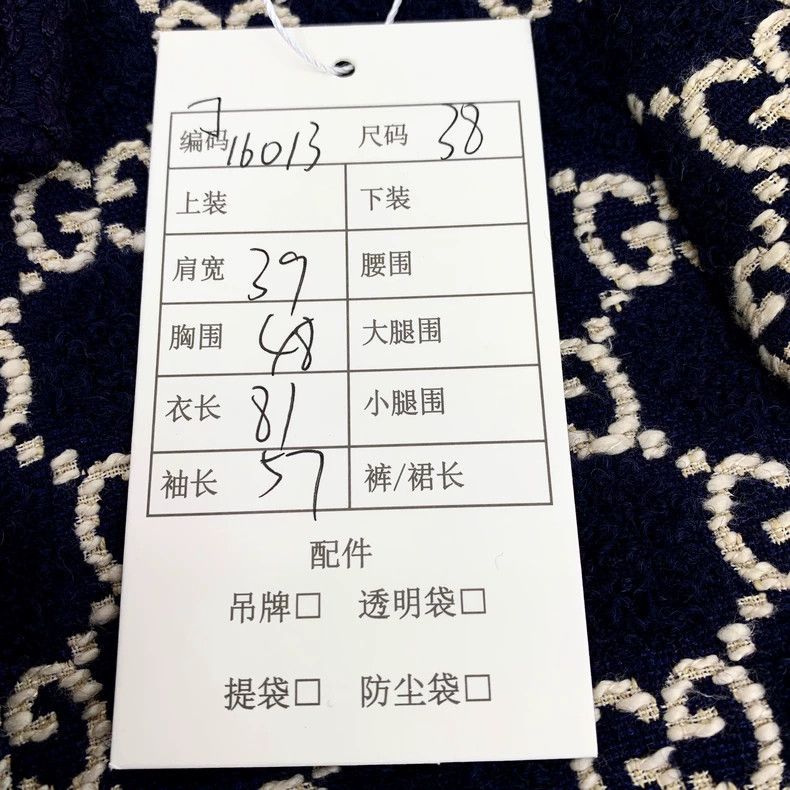 编码 J16013 尺码 38
上装 下装
肩宽 39 腰围
胸围 48 大腿围
衣长 81 小腿围
袖长 57 裤/裙长
配件
吊牌□ 透明袋□
提袋□ 防尘袋□